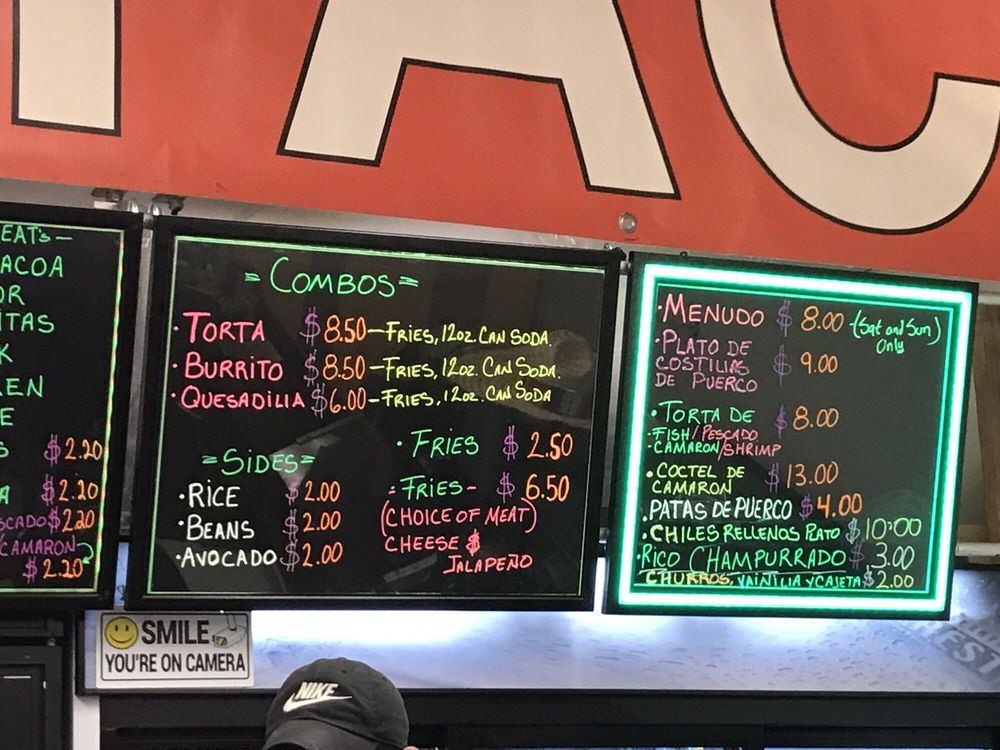 TAC
EAT's—
ACOA
OR
ITAS
K
EN
E
S $2.20
A $2.20
SCADO $2.20
CAMARON
$2.20
=COMBOS=
·TORTA $8.50—FRIES, 12oz. CAN SODA.
·BURRITO $8.50—FRIES, 12oz. CAN SODA.
·QUESADILIA $6.00—FRIES, 12oz. CAN SODA
=SIDES=
·RICE $2.00
·BEANS $2.00
·AVOCADO $2.00
·FRIES $2.50
·FRIES- $6.50
(CHOICE OF MEAT)
CHEESE $
JALAPEÑO
·MENUDO $8.00 (Sat and Sun)
Only
·PLATO DE
COSTILIAS $9.00
DE PUERCO
·TORTA DE $8.00
·FISH/PESCADO
·CAMARON/SHRIMP
·COCTEL DE $13.00
CAMARON
·PATAS DE PUERCO $4.00
·CHILES RELLENOS PLATO $10:00
·RICO CHAMPURRADO $3.00
·CHURROS, VAINILIA Y CAJETA $2.00
SMILE
YOU'RE ON CAMERA
NIKE
WEST